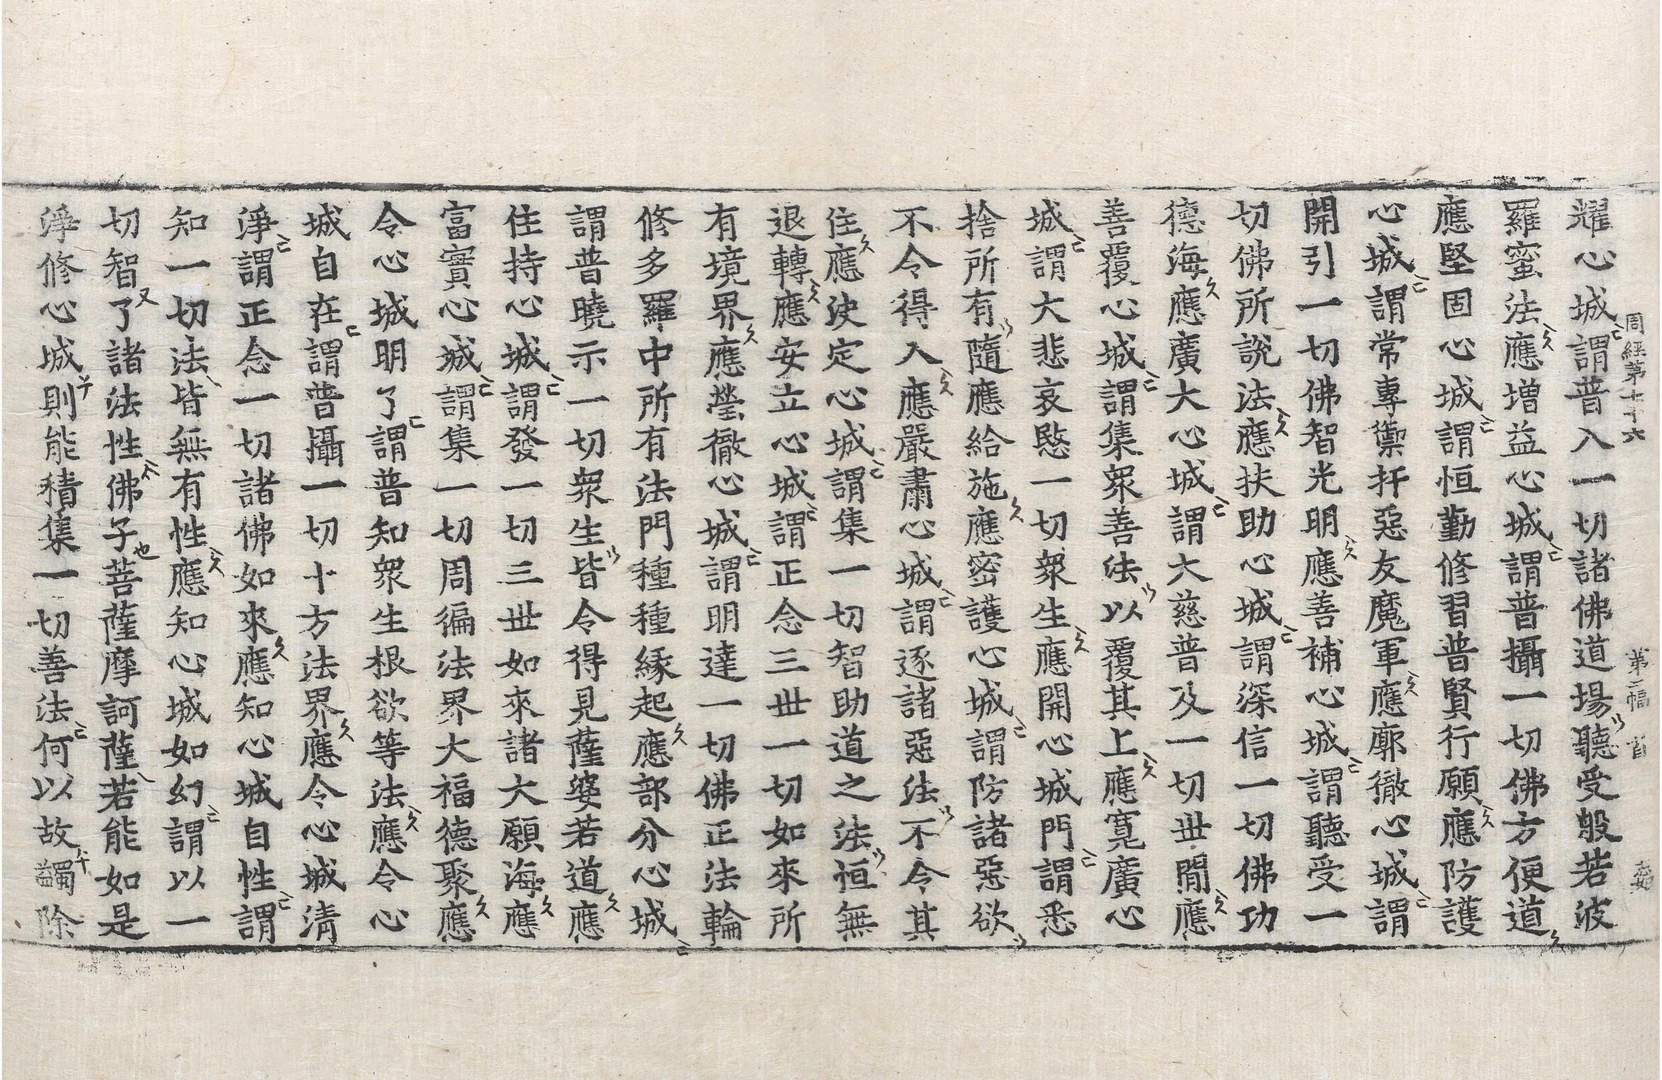 周經第七十六　第二幅
耀心城謂普入一切諸佛道場聽受般若波
羅蜜法應增益心城謂普攝一切佛方便道
應堅固心城謂恒勤修習普賢行願應防護
心城謂常專禦扞惡友魔軍應廓徹心城謂
開引一切佛智光明應善補心城謂聽受一
切佛所說法應扶助心城謂深信一切佛功
德海應廣大心城謂大慈普及一切世間應
善覆心城謂集衆善法以覆其上應寬廣心
城謂大悲哀愍一切衆生應開心城門謂悉
捨所有隨應給施應密護心城謂防諸惡欲
不令得入應嚴肅心城謂逐諸惡法不令其
住應決定心城謂集一切智助道之法恒無
退轉應安立心城謂正念三世一切如來所
有境界應瑩徹心城謂明達一切佛正法輪
修多羅中所有法門種種緣起應部分心城
謂普曉示一切衆生皆令得見薩婆若道應
住持心城謂發一切三世如來諸大願海應
富實心城謂集一切周徧法界大福德聚應
令心城明了謂普知衆生根欲等法應令心
城自在謂普攝一切十方法界應令心城清
淨謂正念一切諸佛如來應知心城自性謂
知一切法皆無有性應知心城如幻謂以一
切智了諸法性佛子菩薩摩訶薩若能如是
淨修心城則能積集一切善法何以故蠲除